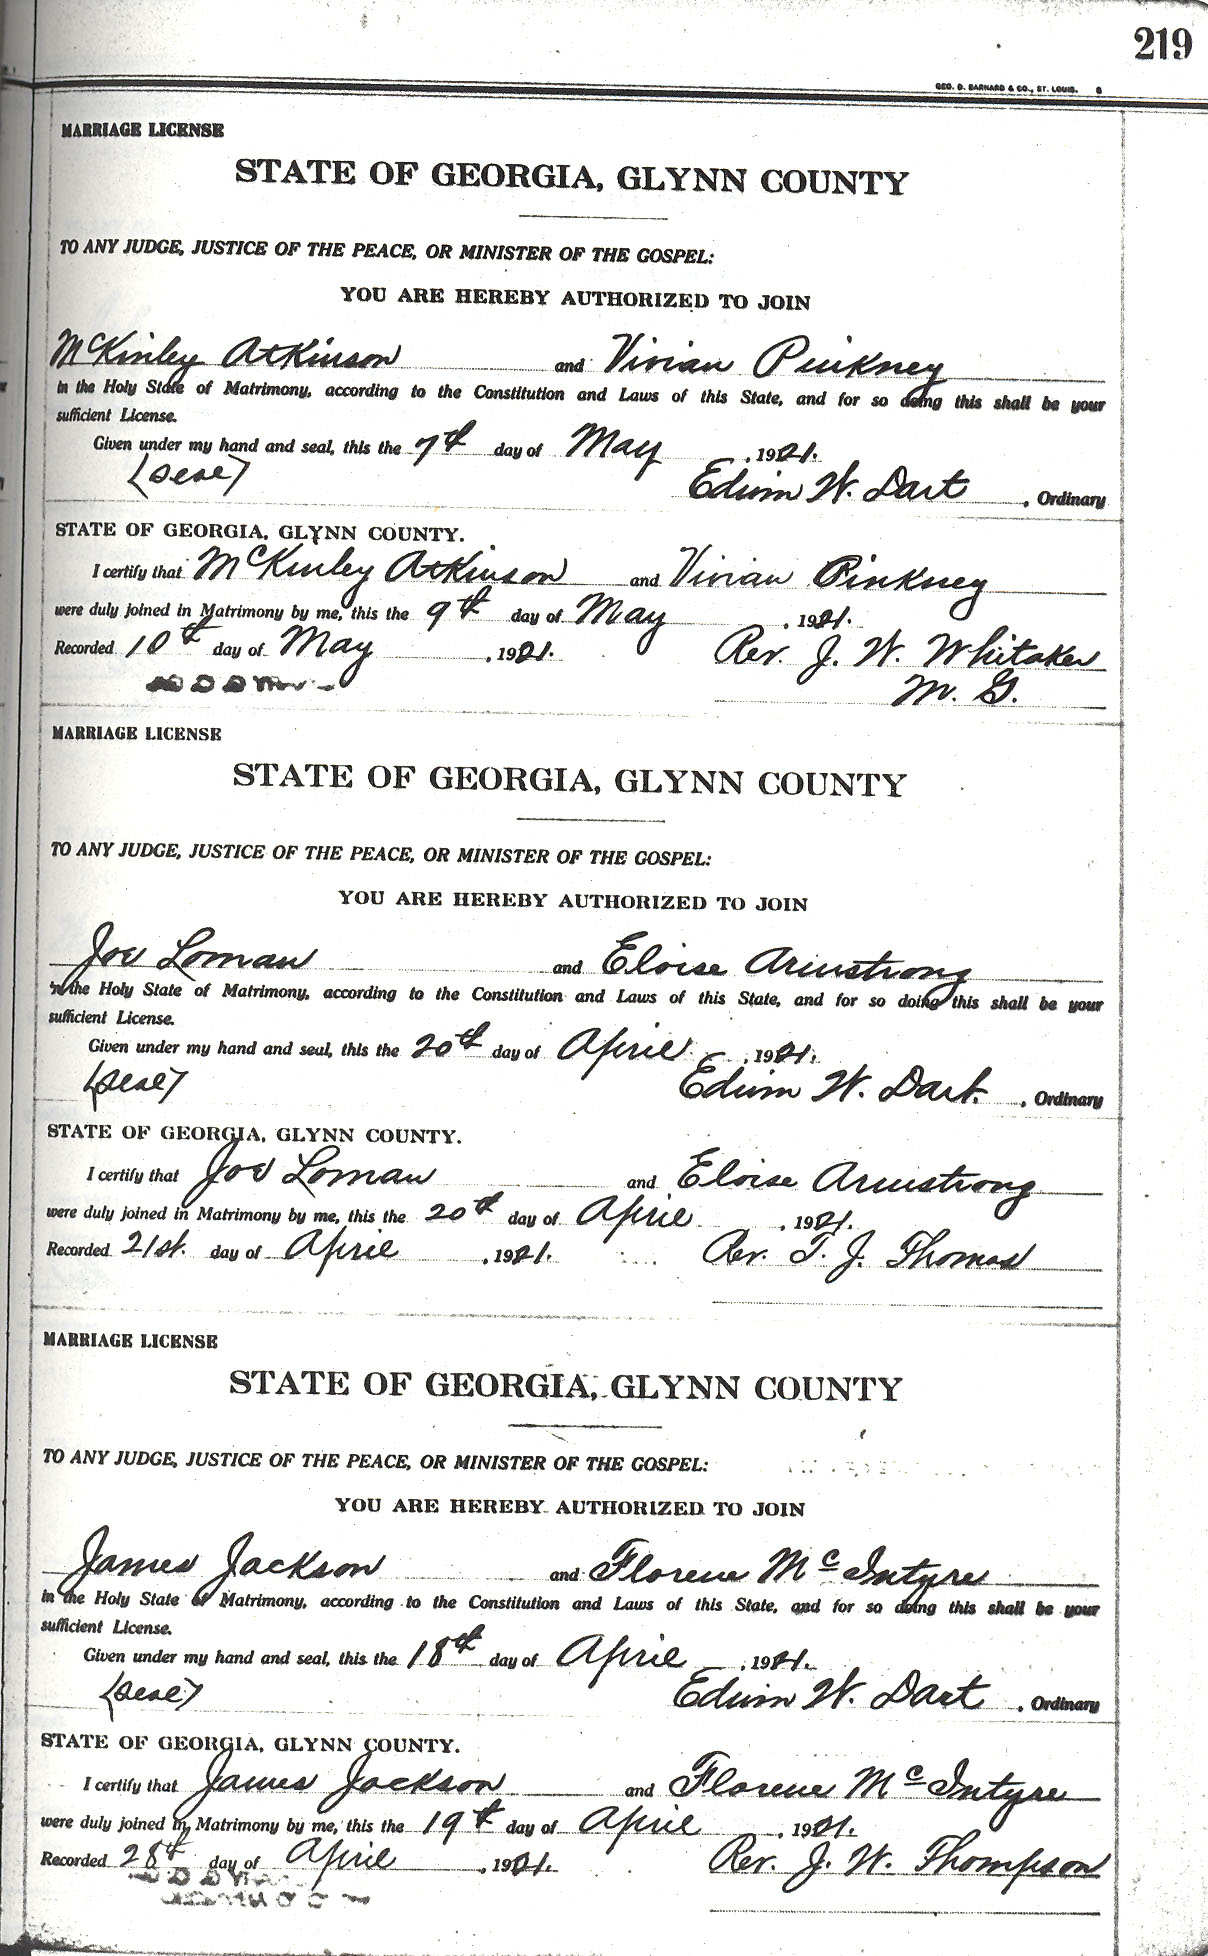 219
GEO. D. BARNARD & CO., ST. LOUIS.
MARRIAGE LICENSE
STATE OF GEORGIA, GLYNN COUNTY
TO ANY JUDGE, JUSTICE OF THE PEACE, OR MINISTER OF THE GOSPEL:
YOU ARE HEREBY AUTHORIZED TO JOIN
McKinley Atkinson and Vivian Pinkney
in the Holy State of Matrimony, according to the Constitution and Laws of this State, and for so doing this shall be your
sufficient License.
Given under my hand and seal, this the 7th day of May, 1921.
(Seal) Edwin W. Dart, Ordinary
STATE OF GEORGIA, GLYNN COUNTY.
I certify that McKinley Atkinson and Vivian Pinkney
were duly joined in Matrimony by me, this the 9th day of May, 1921.
Recorded 10th day of May, 1921. Rev. J. W. Whitaker
M. G.
MARRIAGE LICENSE
STATE OF GEORGIA, GLYNN COUNTY
TO ANY JUDGE, JUSTICE OF THE PEACE, OR MINISTER OF THE GOSPEL:
YOU ARE HEREBY AUTHORIZED TO JOIN
Joe Loman and Eloise Armstrong
in the Holy State of Matrimony, according to the Constitution and Laws of this State, and for so doing this shall be your
sufficient License.
Given under my hand and seal, this the 20th day of April, 1921.
(Seal) Edwin W. Dart, Ordinary
STATE OF GEORGIA, GLYNN COUNTY.
I certify that Joe Loman and Eloise Armstrong
were duly joined in Matrimony by me, this the 20th day of April, 1921.
Recorded 21st. day of April, 1921. Rev. T. J. Thomas
MARRIAGE LICENSE
STATE OF GEORGIA, GLYNN COUNTY
TO ANY JUDGE, JUSTICE OF THE PEACE, OR MINISTER OF THE GOSPEL:
YOU ARE HEREBY AUTHORIZED TO JOIN
James Jackson and Florene McIntyre
in the Holy State of Matrimony, according to the Constitution and Laws of this State, and for so doing this shall be your
sufficient License.
Given under my hand and seal, this the 18th day of April, 1921.
(Seal) Edwin W. Dart, Ordinary
STATE OF GEORGIA, GLYNN COUNTY.
I certify that James Jackson and Florene McIntyre
were duly joined in Matrimony by me, this the 19th day of April, 1921.
Recorded 28th day of April, 1921. Rev. J. W. Thompson